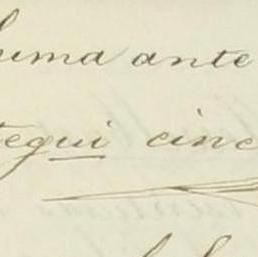 uma ante
tegui cinc